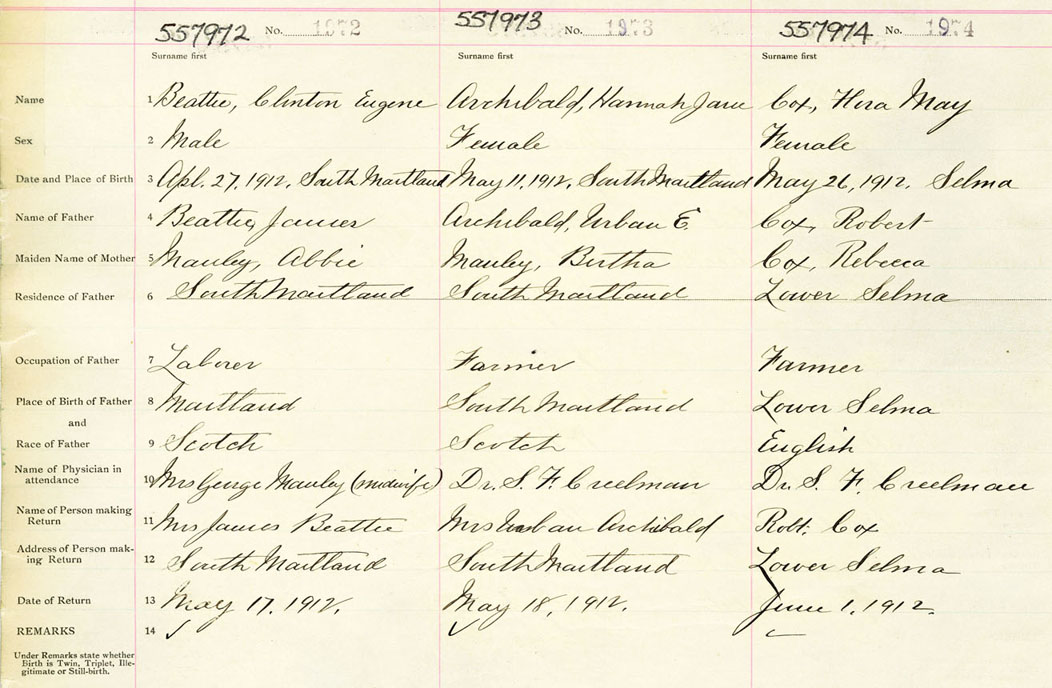 557972 No. 1972 557973 No. 1973 557974 No. 1974
Surname first Surname first Surname first
Name 1 Beattie, Clinton Eugene Archibald, Hannah Jane Cox, Flora May
Sex 2 Male Female Female
Date and Place of Birth 3 Apl. 27, 1912, South Maitland May 11, 1912, South Maitland May 26, 1912. Selma
Name of Father 4 Beattie, James Archibald, Urban E. Cox, Robert
Maiden Name of Mother 5 Manley, Abbie Manley, Bertha Cox, Rebecca
Residence of Father 6 South Maitland South Maitland Lower Selma
Occupation of Father 7 Laborer Farmer Farmer
Place of Birth of Father 8 Maitland South Maitland Lower Selma
and
Race of Father 9 Scotch Scotch English
Name of Physician in
attendance 10 Mrs George Manley (midwife) Dr. S. F. Creelman Dr. S. F. Creelman
Name of Person making
Return 11 Mrs James Beattie Mrs Urban Archibald Robt. Cox
Address of Person mak-
ing Return 12 South Maitland South Maitland Lower Selma
Date of Return 13 May 17, 1912. May 18, 1912. June 1, 1912.
REMARKS 14 ✓ ✓ ✓
Under Remarks state whether
Birth is Twin, Triplet, Ille-
gitimate or Still-birth.